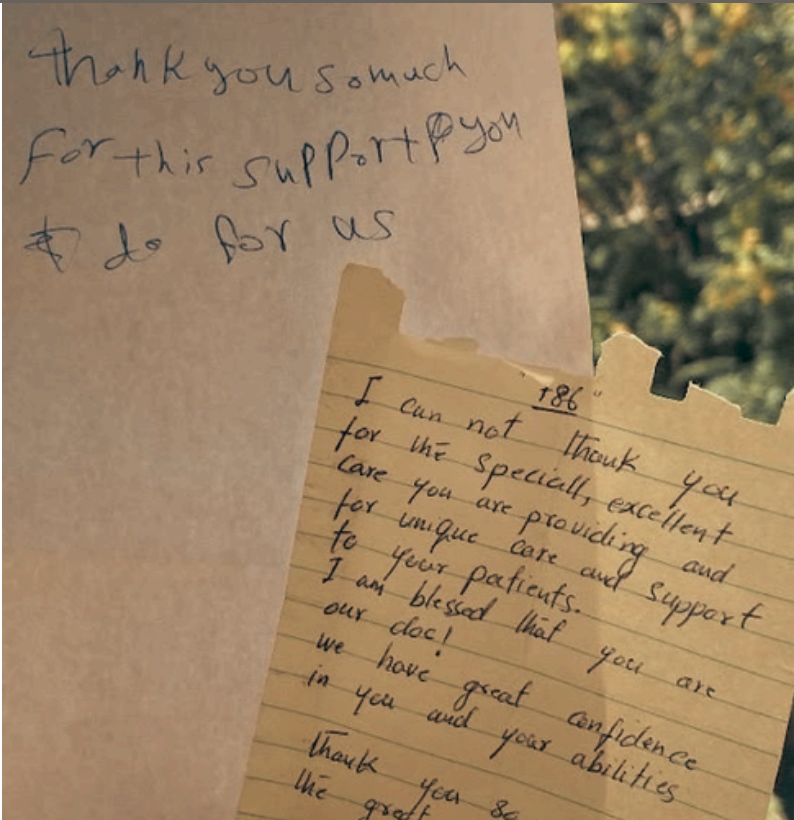 thank you so much
for this support you
do for us
"786"
I can not thank you
for the speciall, excellent
care you are providing and
for unique care and support
to your patients.
I am blessed that you are
our doc!
we have great confidence
in you and your abilities
Thank you so
the great